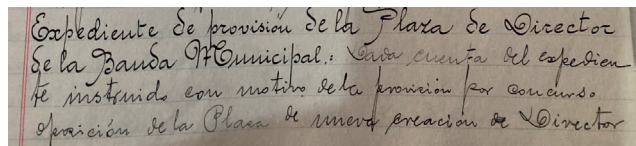 Expediente de provisión de la Plaza de Director
de la Banda Municipal.: Dada cuenta del expedien
te instruido con motivo de la provisión por concurso
oposición de la Plaza de nueva creación de Director